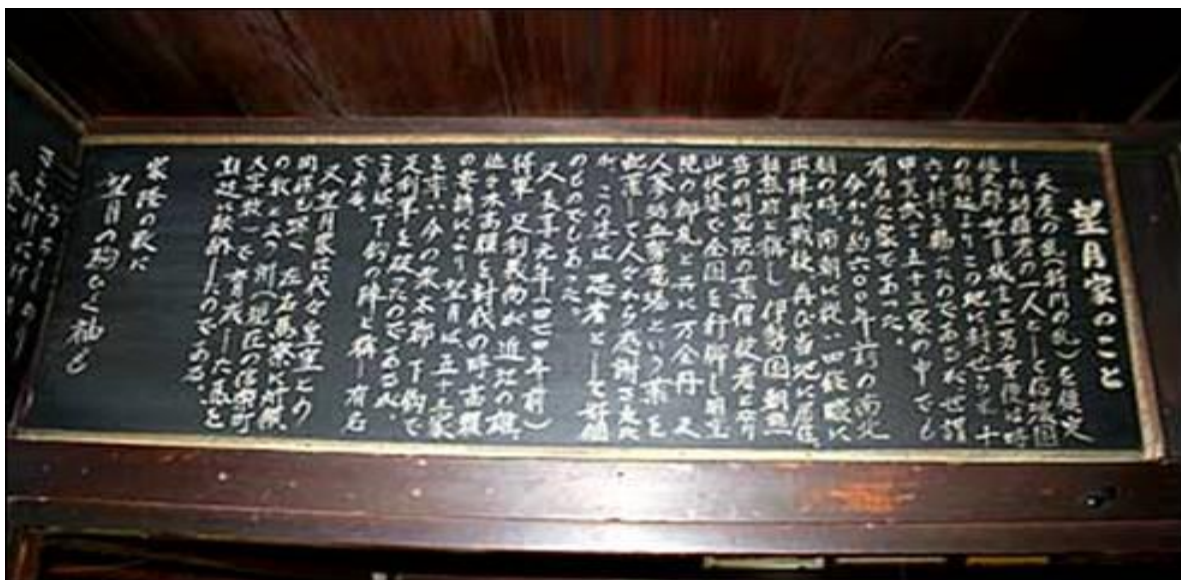 望月家のこと
天慶の乱(将門の乱)を鎮定
した功績者の一人として信城国
望月城主三郎重使は時
の朝廷よりこの地に封せられ十
六ヶ村を賜ったのである
甲賀武士五十三家の中でも
有名な家であった。
今から約六〇〇年前の南北
朝の時、南朝に従い四條畷に
出陣敗戦後、再び当地に居住、
朝熊坊と稱し 伊勢国 朝熊
岳の明宝院の
山伏姿で全国を行脚し明宝
院の御札と共に万金丹 又
人参活血勢竜湯という薬を
配葉して人々から感謝された
が、この実は忍者としての
のものでもあった。
又長享元年(一四七四年前)
将軍 足利義尚が 近江の雄、
佐々木高頼を討伐の時、高頼
の要請により望月は五十三家
を率い今の栗太郡 下鈎で
足利軍を破ったのであるが
これは下鈎の陣と稱し有名
である。
又望月家は代々皇室との
関係も深く 左右馬寮に附属
の牧と云う所(現在の信楽町
大字牧)で育成した馬を
朝廷へ献納したのである。
家隆の歌に
望月の駒ひく袖も